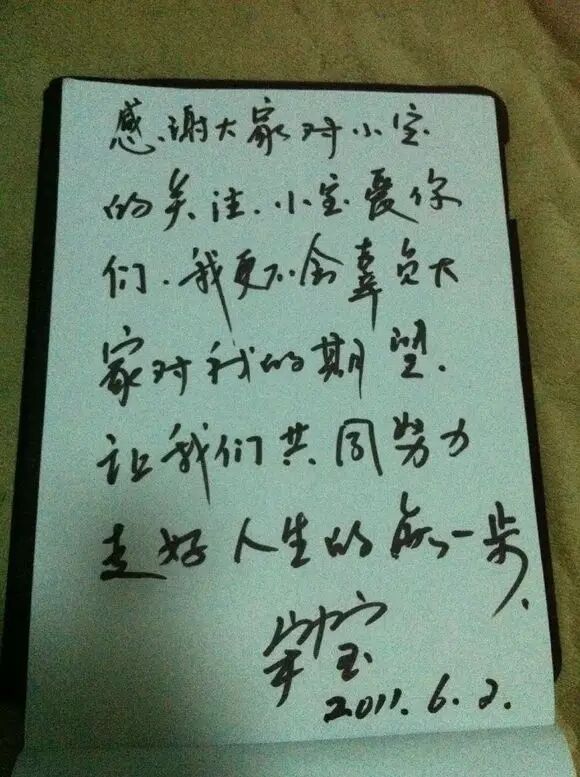 感谢大家对小宝
的关注.小宝爱你
们.我更不会辜负大
家对我的期望.
让我们共同努力
走好人生的每一步.
宝
2011.6.2.